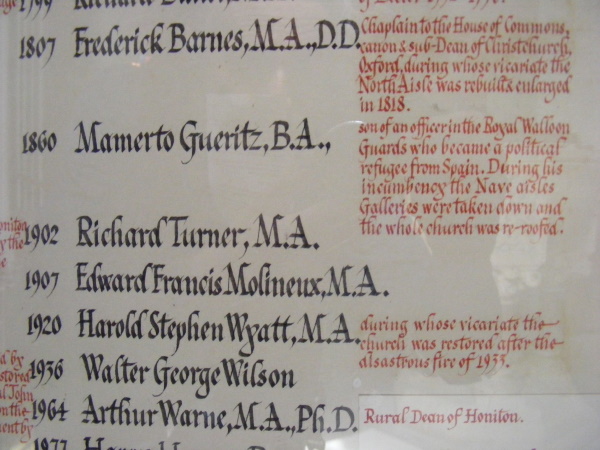 1799
1807 Frederick Barnes, M.A., D.D.
Chaplain to the House of Commons,
canon & sub-Dean of Christchurch,
Oxford, during whose vicariate the
North Aisle was rebuilt & enlarged
in 1818.
1860 Mamerto Gueritz, B.A.,
son of an officer in the Royal Walloon
Guards who became a political
refugee from Spain. During his
incumbency the Nave aisles
Galleries were taken down and
the whole church was re-roofed.
1902 Richard Turner, M.A.
1907 Edward Francis Molineux, M.A.
1920 Harold Stephen Wyatt, M.A.
during whose vicariate the
church was restored after the
disastrous fire of 1933.
1936 Walter George Wilson
1964 Arthur Warne, M.A., Ph.D.
Rural Dean of Honiton.
1977